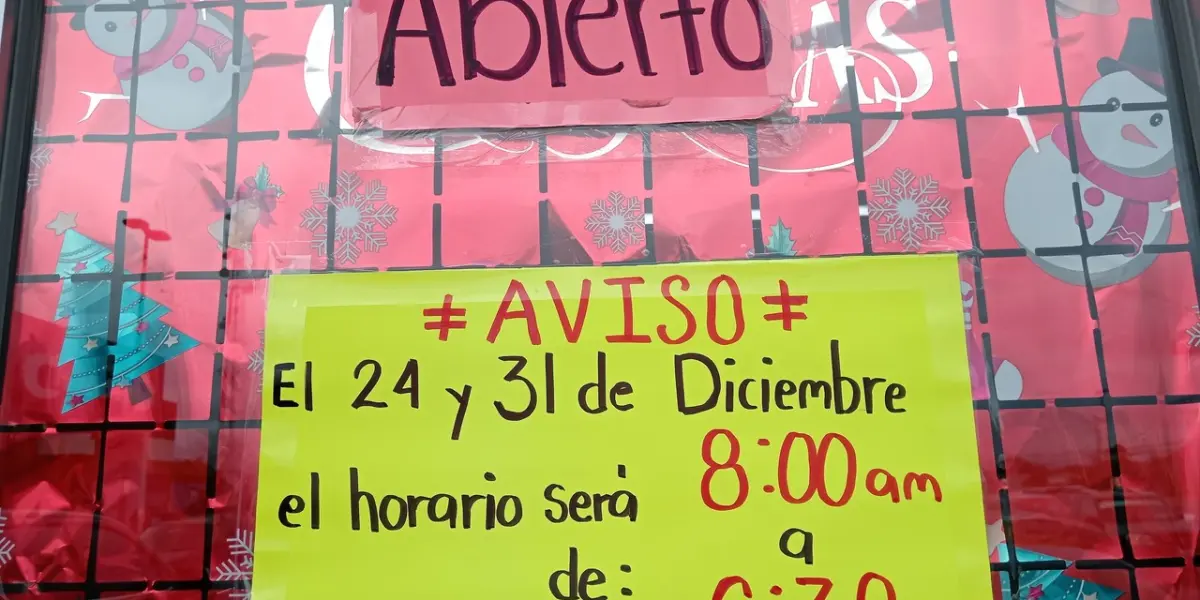 Abierto
≠ AVISO ≠
El 24 y 31 de Diciembre
el horario será
8:00 am
de:
a